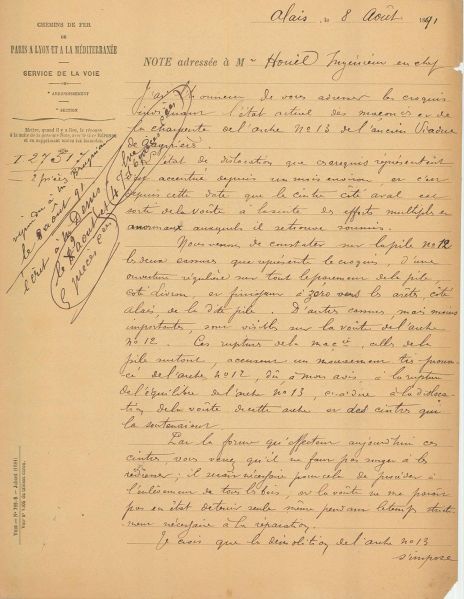 CHEMINS DE FER
DE
PARIS A LYON ET A LA MÉDITERRANÉE
SERVICE DE LA VOIE
ARRONDISSEMENT
SECTION
Alais, le 8 Août 1891
NOTE adressée à Mr Houël Ingénieur en chef
T 2751
2 pièces
répondu à
le 8 août 91
écrit à Mr Denis
le 8 août
J'ai l'honneur de vous adresser les croquis
l'état actuel des maçonies et de
la charpente de l'arche No 13 de l'ancien Viaduc
de
L'état de dislocation que ces croquis représentent
s'est accentué depuis un mois environ, et c'est
depuis cette date que le cintre côté aval est
sorti de la voûte à la suite des efforts multiples et
anormaux auxquels il se trouve soumis.
Nous venons de constater sur la pile No 12
les deux cassures que représente le croquis, d'une
ouverture régulière sur tout le parement de la pile,
côté Livron, et finissant à zéro vers les arêtes, côté
Alais, de la dite pile. D'autres cassures, mais moins
importantes, sont visibles sur la voûte de l'arche
no 12. Ces ruptures de la macie, celles de la
pile surtout, accusent un mouvement très pronon-
cé de l'arche No 12, dû, à mon avis, à la rupture
de l'équilibre de l'arche No 13, c'est à dire à la disloca-
tion de la voûte de cette arche et des cintres qui
la soutenaient.
Par la forme qu'affectent aujourd'hui ces
cintres, vous verrez qu'il ne faut pas songer à les
redresser; il serait nécessaire pour cela de procéder à
l'enlèvement de tous les bois, et la voûte ne me paraît
pas en état de tenir seule même pendant le temps stricte-
ment nécessaire à la réparation.
Je crois que la démolition de l'arche no 13
s'impose